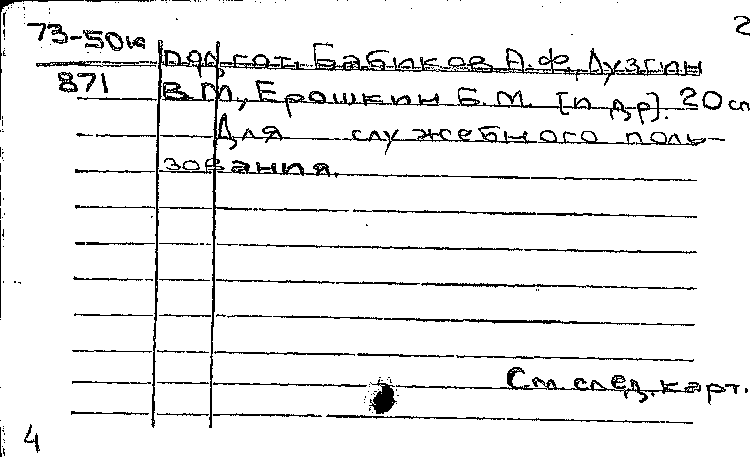 2
73-50ю
871
подгот. Бабиков А.Ф., Лузгин
В.М., Ерошкин Б.М. [и др]. 20сп
Для служебного поль-
зования.
См. след. карт.
4